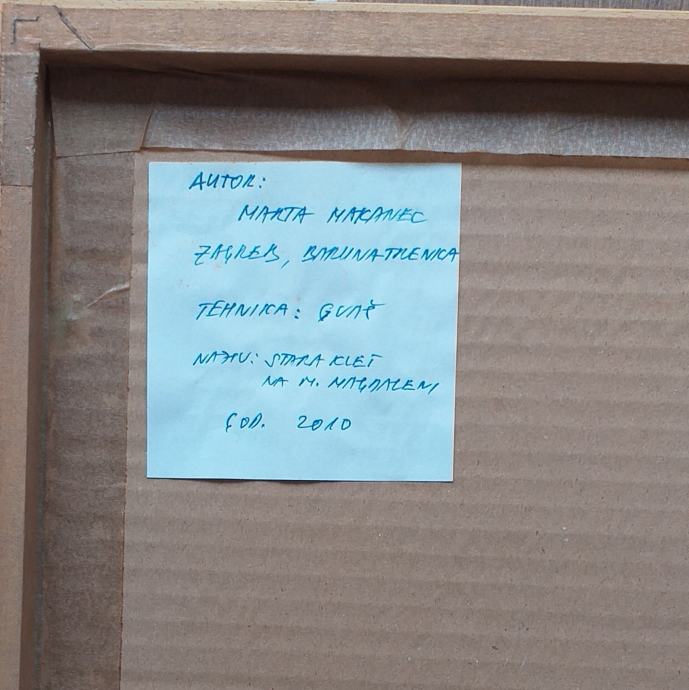 AUTOR:
MARTA MAKANEC
ZAGREB, BARUNA TRENKA
TEHNIKA: GVAŠ
NAZIV: STARA KLET
NA M. MAGDALENI
GOD. 2010